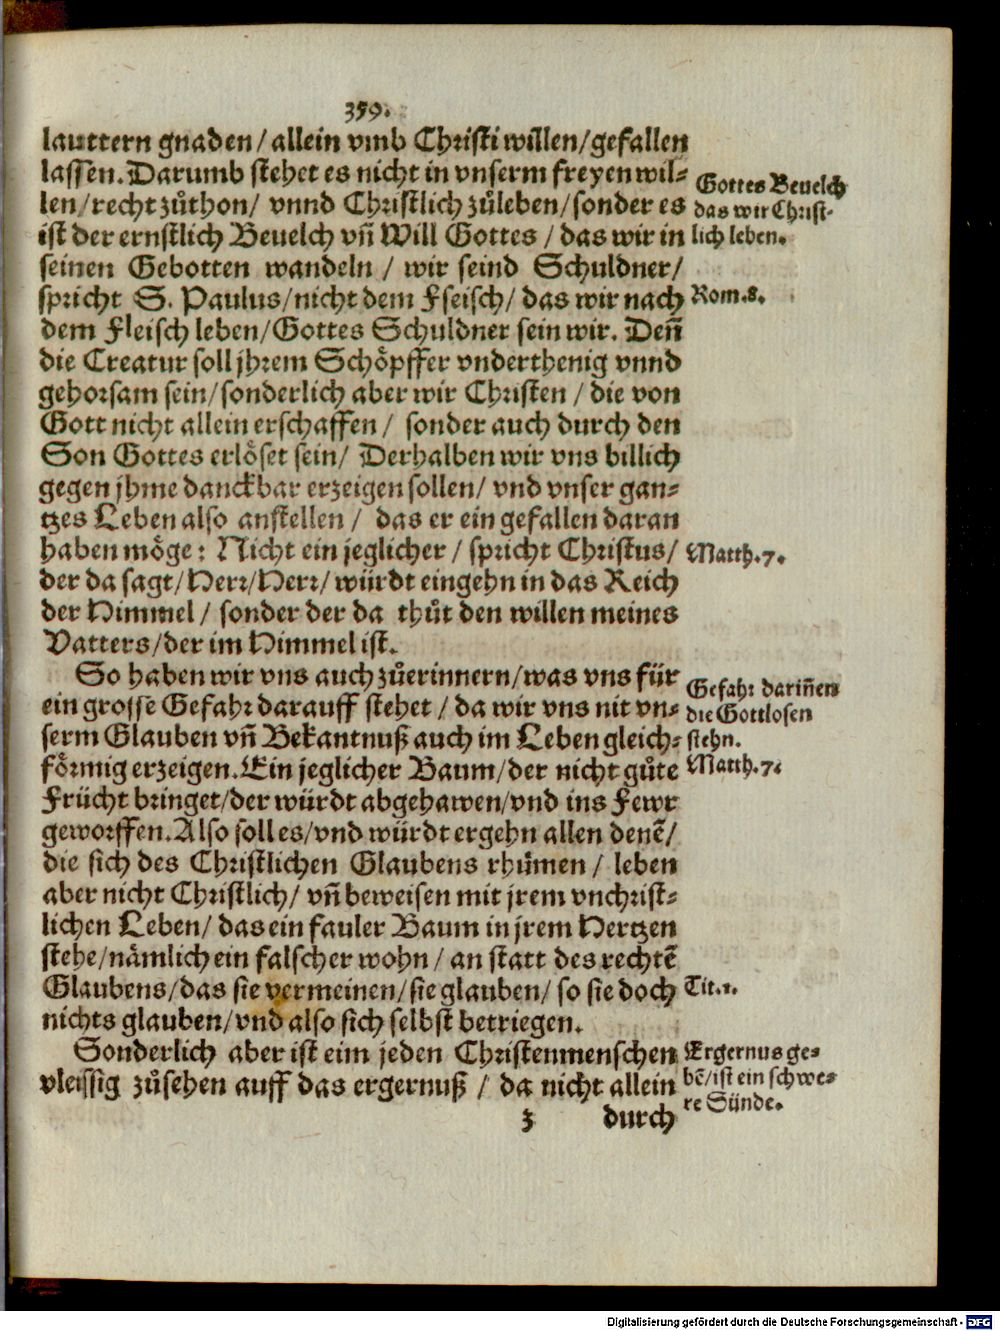 359.
lauttern gnaden / allein vmb Christi willen / gefallen
lassen. Darumb stehet es nicht in vnserm freyen wil⸗
len / recht zůthon / vnnd Christlich zůleben / sonder es
ist der ernstlich Beuelch vñ Will Gottes / das wir in
seinen Gebotten wandeln / wir seind Schuldner /
spricht S. Paulus / nicht dem Fseisch / das wir nach
dem Fleisch leben / Gottes Schuldner sein wir. Deñ
die Creatur soll jhrem Schöpffer vnderthenig vnnd
gehorsam sein / sonderlich aber wir Christen / die von
Gott nicht allein erschaffen / sonder auch durch den
Son Gottes erlöset sein / Derhalben wir vns billich
gegen jhme danckbar erzeigen sollen / vnd vnser gan⸗
tzes Leben also anstellen / das er ein gefallen daran
haben möge: Nicht ein jeglicher / spricht Christus /
der da sagt / Herr / Herr / würdt eingehn in das Reich
der Himmel / sonder der da thůt den willen meines
Vatters / der im Himmel ist.
So haben wir vns auch zůerinnern / was vns für
ein grosse Gefahr darauff stehet / da wir vns nit vn⸗
serm Glauben vñ Bekantnuß auch im Leben gleich⸗
förmig erzeigen. Ein jeglicher Baum / der nicht gůte
Frücht bringet / der würdt abgehawen / vnd ins Fewr
geworffen. Also soll es / vnd würdt ergehn allen denẽ /
die sich des Christlichen Glaubens rhůmen / leben
aber nicht Christlich / vñ beweisen mit jrem vnchrist⸗
lichen Leben / das ein fauler Baum in jrem Hertzen
stehe / nämlich ein falscher wohn / an statt des rechtẽ
Glaubens / das sie vermeinen / sie glauben / so sie doch
nichts glauben / vnd also sich selbst betriegen.
Sonderlich aber ist eim jeden Christenmenschen
vleissig zůsehen auff das ergernuß / da nicht allein
z durch
Gottes Beuelch
das wir Christ⸗
lich leben.
Rom. 8.
Matth. 7.
Gefahr dariñen
die Gottlosen
stehn.
Matth. 7.
Tit. 1.
Ergernus ge⸗
bẽ / ist ein schwe⸗
re Sünde.
Digitalisierung gefördert durch die Deutsche Forschungsgemeinschaft - DFG